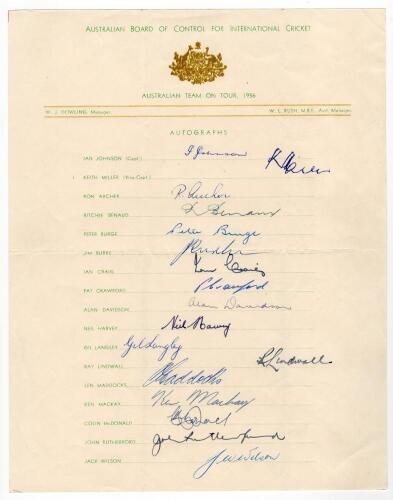 AUSTRALIAN BOARD OF CONTROL FOR INTERNATIONAL CRICKET
AUSTRALIAN TEAM ON TOUR, 1956
W. J. DOWLING, Manager. W. L. RUSH, M.B.E., Asst. Manager.
AUTOGRAPHS
IAN JOHNSON (Capt.) I Johnson
KEITH MILLER (Vice-Capt.)
RON ARCHER R. Archer
RITCHIE BENAUD R Benaud
PETER BURGE Peter Burge
JIM BURKE
IAN CRAIG Ian Craig
PAT CRAWFORD P Crawford
ALAN DAVIDSON Alan Davidson
NEIL HARVEY Neil Harvey
GIL LANGLEY Gil Langley
RAY LINDWALL R Lindwall
LEN MADDOCKS L Maddocks
KEN MACKAY Ken Mackay
COLIN McDONALD
JOHN RUTHERFORD John Rutherford
JACK WILSON J W Wilson